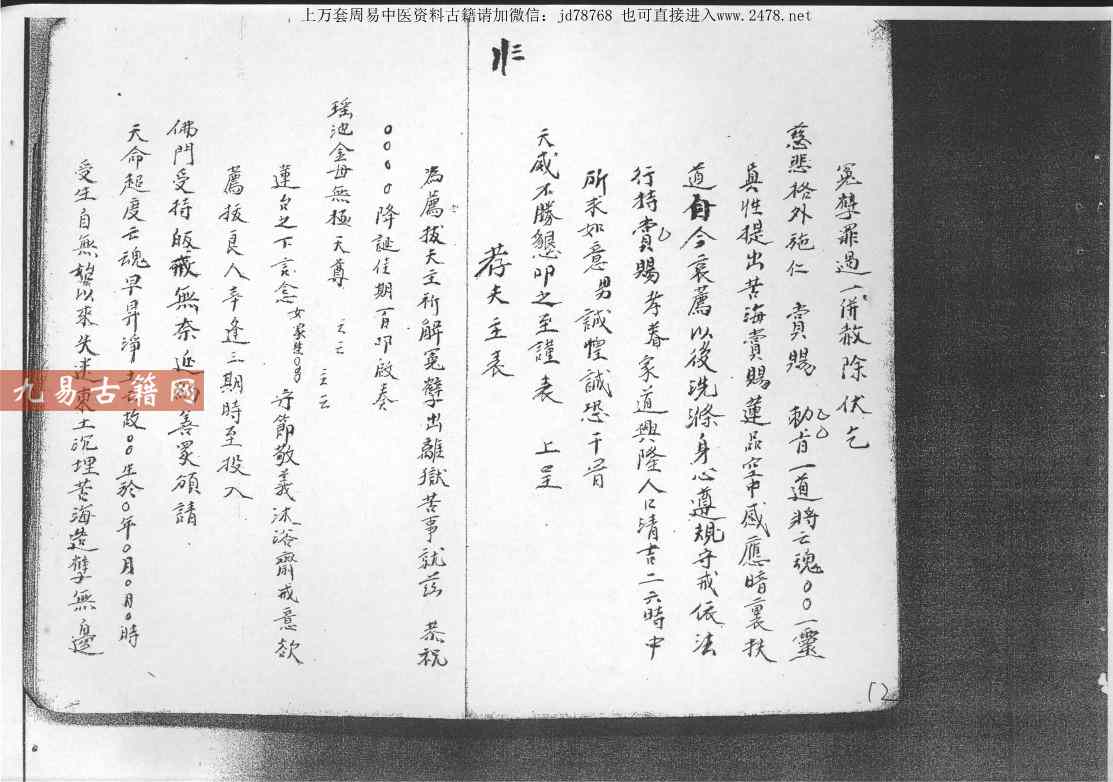 上万套周易中医资料古籍请加微信：jd78768 也可直接进入www.2478.net
冤孽罪过一併赦除伏乞
慈悲格外施仁 賞賜 勅旨一道將亡魂○○一靈
真性提出苦海賞賜蓮品空中感應暗裏扶
道自今哀薦以後洗滌身心遵規守戒依法
行持賞賜孝眷家道興隆人口清吉二六時中
所求如意男誠惶誠恐千冒
天威不勝懇叩之至謹表 上呈
荐夫主表
為薦拔夫主祈解冤孽出離獄苦事就茲 恭祝
○○○○降誕佳期百叩啟奏
瑤池金母無極天尊 云云
蓮台之下言念女眾生○○守節敬義沐浴齋戒意欲
薦拔良人幸逢三期時至投入
佛門受持皈戒無奈 善果頒請
天命超度亡魂早昇淨 故○○生於○年○月○日○時
受生自無始以來失迷東土沉埋苦海造孽無邊
12
九易古籍网